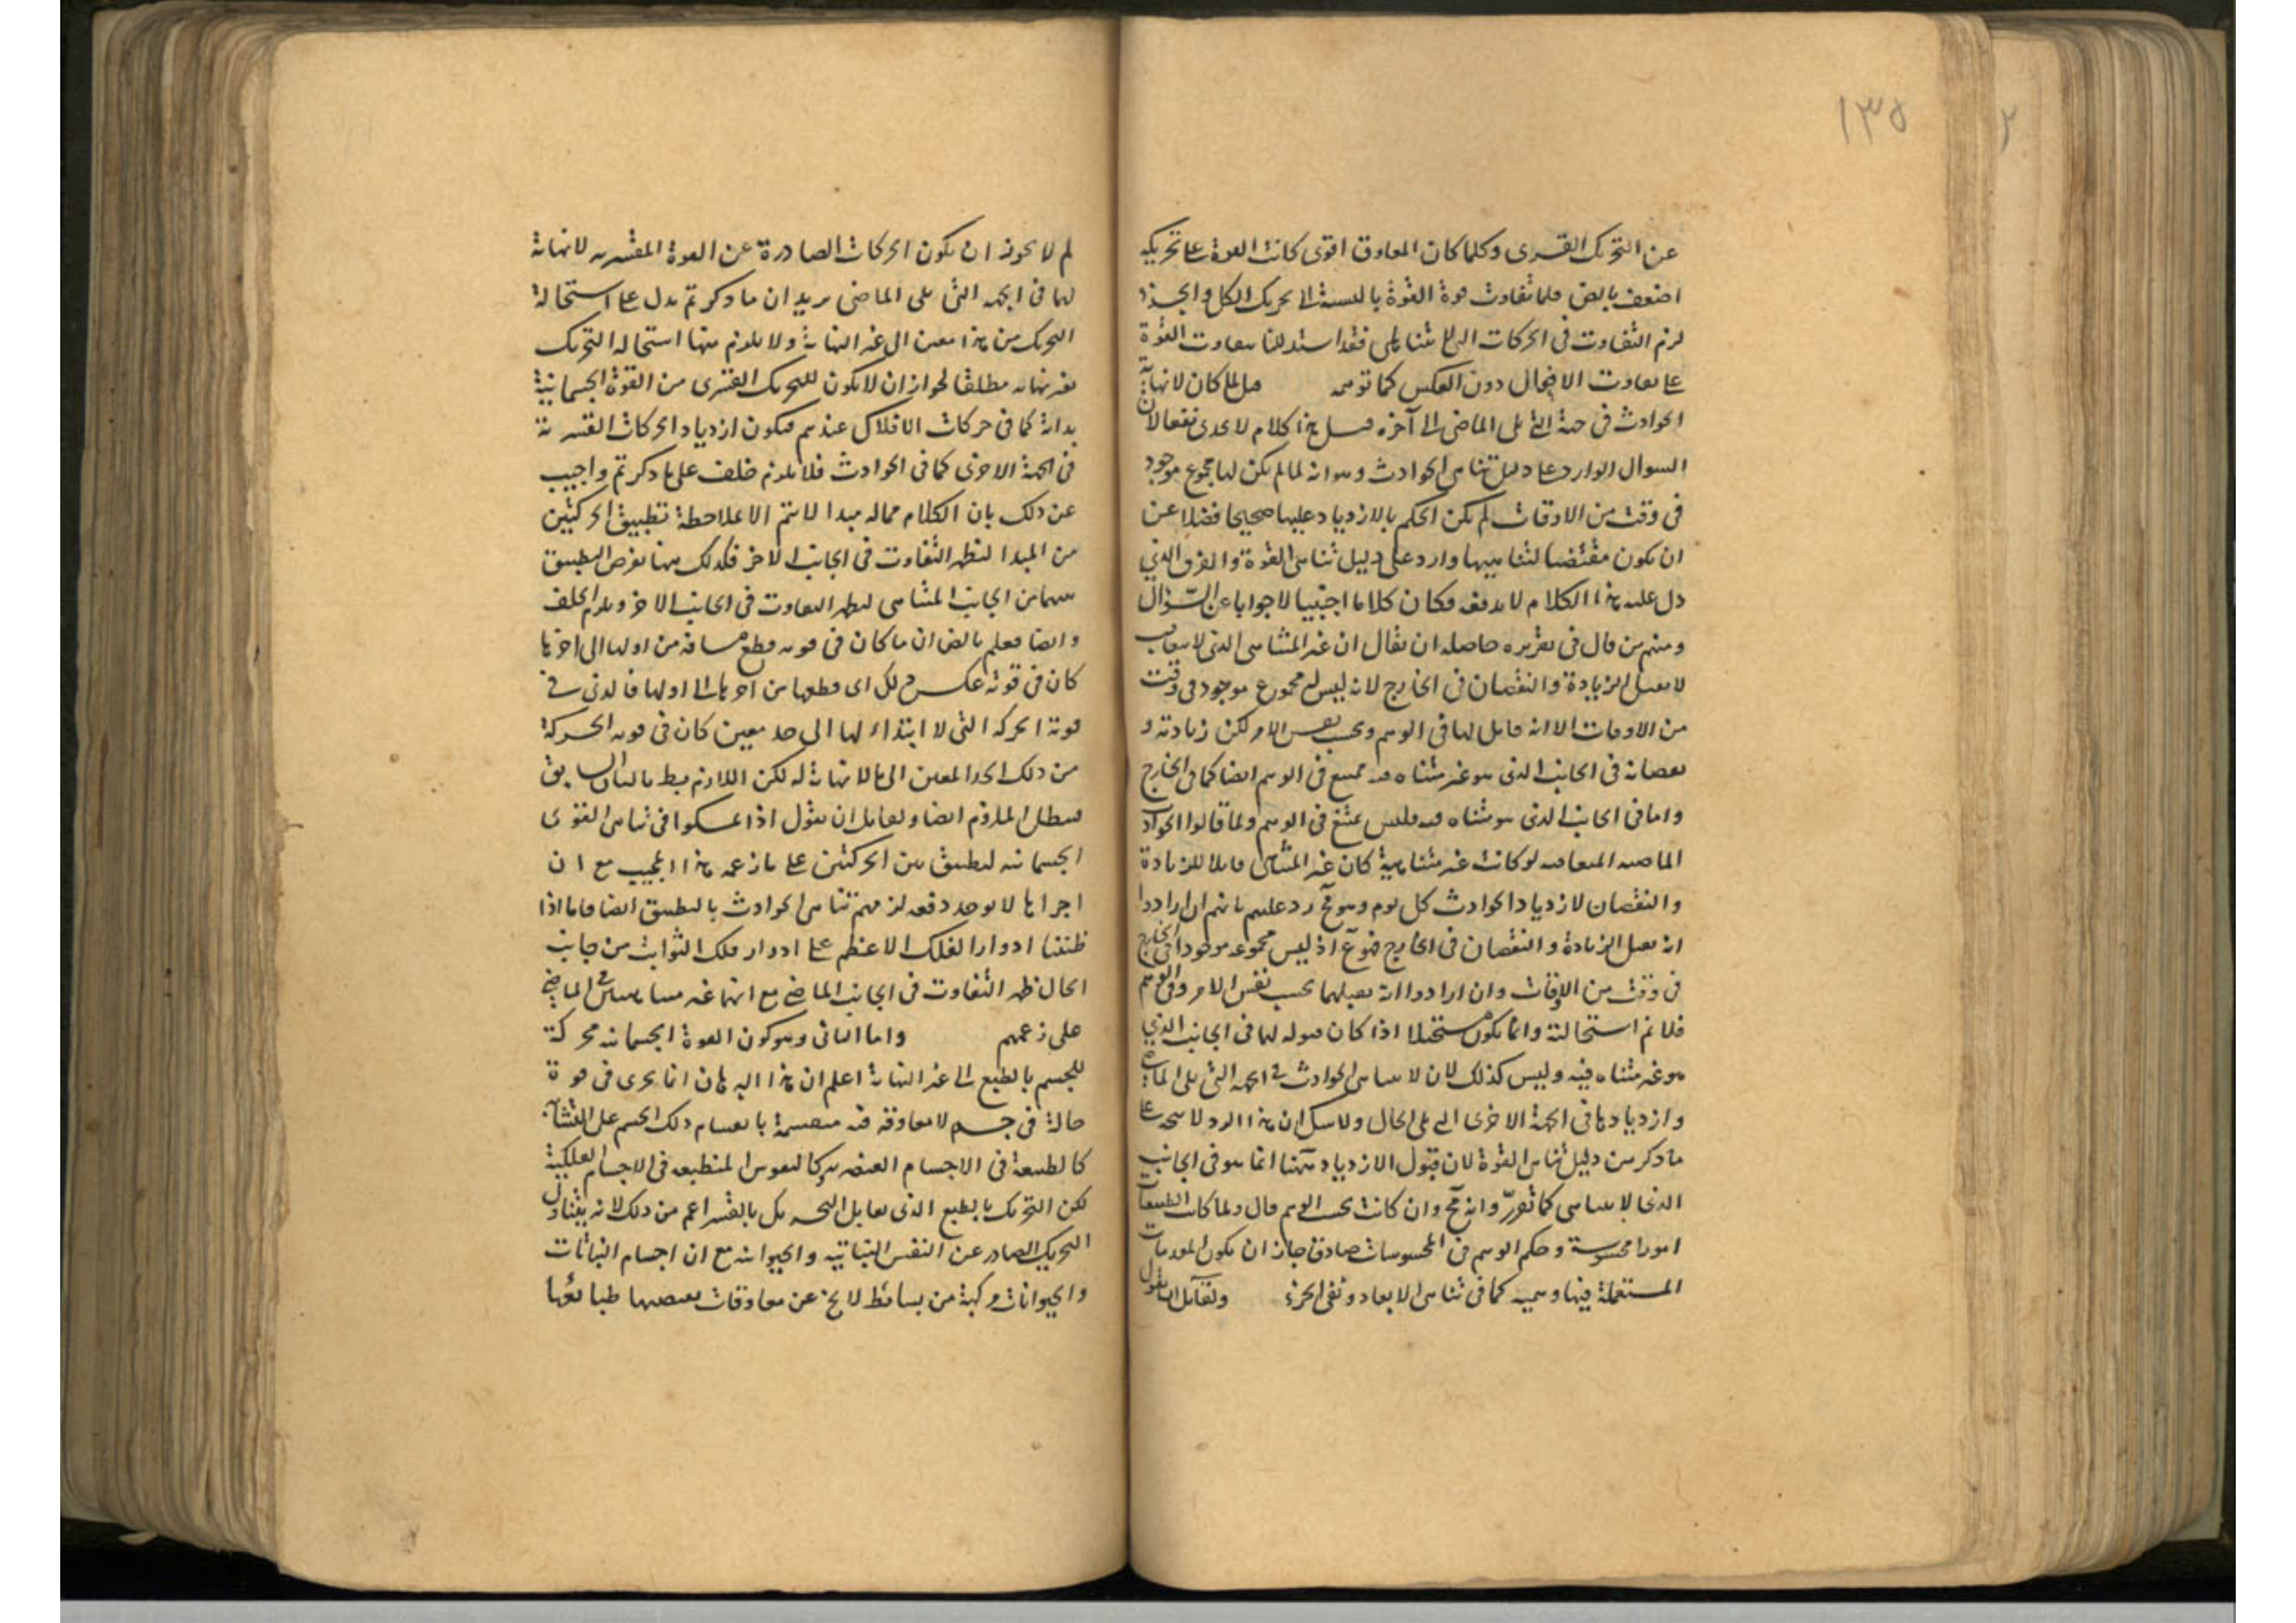 ١٣٥
٢
عن التحريك القسرى وكلما كان المعاوق اقوى كانت القوة على تحريكه
اضعف بالض فلما تفاوت قوة القوة بالنسبة الى تحريك الكل والجزء
لزم التفاوت فى الحركات التى لا تتناهى فقد استدللنا بتفاوت القوة
على تفاوت الافعال دون العكس كما توهمه قيل لما كان لا نهاية
الحوادث فى جهة التى يلى الماضى الى آخره قيل هذا كلام لا يجدى نفعا لان
السوال الوارد على دليل تناهى الحوادث وهو انه لما لم يكن لها مجموع موجود
فى وقت من الاوقات لم يكن الحكم بالازدياد عليها صحيحا فضلا عن
ان يكون مقتضيا لتناهيها وارد على دليل تناهى القوة والفرق الذى
دل عليه هذا الكلام لا يدفعه فكان كلاما اجنبيا لا جوابا عن السؤال
ومنهم من قال فى تقريره حاصله ان يقال ان غير المتناهى الذى لا يتعاقب
لا يقبل الزيادة والنقصان فى الخارج لانه ليس له مجموع موجود فى وقت
من الاوقات الا انه قابل لها فى الوهم وبحسب نفس الامر لكن زيادته و
نقصانه فى الجانب الذى هو غير متناه فيه ممتنع فى الوهم ايضا كما فى الخارج
واما فى الجانب الذى هو متناه فيه فليس بممتنع فى الوهم ولما قالوا الحوادث
الماضيه المتعاقبه لو كانت غير متناهية كان غير المتناهى قابلا للزيادة
والنقصان لازدياد الحوادث كل يوم وهو مح رد عليهم بانهم ان ارادوا
انه يقبل الزيادة والنقصان فى الخارج فهو مم اذ ليس مجموعه موجودا فى الخارج
فى وقت من الاوقات وان ارادوا انه يقبلهما بحسب نفس الامر وفى الوهم
فلا نم استحالته وانما يكون مستحيلا اذا كان قبوله لهما فى الجانب الذى
هو غير متناه فيه وليس كذلك لان لا تناهى الحوادث فى الجهة التى يلى الماضى
وازديادها فى الجهة الاخرى التى يلى الحال ولا شك ان هذا الرد لا يتجه على
ما ذكر من دليل تناهى القوة لان قبول الازدياد ههنا انما هو فى الجانب
الذى لا يتناهى كما تقرر وانه مح وان كانت بحسب الوهم قال ولما كانت الطبيعات
امورا محسوسة وحكم الوهم فى المحسوسات صادق جاز ان يكون المقدمات
المستعملة فيها وهميه كما فى تناهى الابعاد ونفى الجزء ولقائل ان يقول
لم لا يجوز ان يكون الحركات الصادرة عن القوة القسريه لا نهاية
لها فى الجهه التى يلى الماضى يريد ان ما ذكرتم يدل على استحالة
التحريك من مبدا معين الى غير النهاية ولا يلزم منها استحالة التحريك
بغير نهايه مطلقا لجواز ان لا يكون للتحريك القسرى من القوة الجسمانية
بداية كما فى حركات الافلاك عندهم فيكون ازدياد الحركات القسرية
فى الجهة الاخرى كما فى الحوادث فلا يلزم خلف على ما ذكرتم واجيب
عن ذلك بان الكلام فيما له مبدا لا يتم الا بملاحظة تطبيق الحركتين
من المبدا ليظهر التفاوت فى الجانب الاخر فكذلك ههنا نفرض التطبيق
بينهما من الجانب المتناهى ليظهر التفاوت فى الجانب الاخر ويلزم الخلف
وايضا نعلم بالض ان ما كان فى قوته قطع مسافة من اولها الى اخرها
كان فى قوته عكس ذلك اى قطعها من اخرها الى اولها فالذى فى
قوته الحركه التى لا ابتداء لها الى حد معين كان فى قوته الحركة
من ذلك الحد المعين الى ما لا نهاية له لكن اللازم بط بالبيان السابق
فبطل الملزوم ايضا ولقائل ان يقول اذا تمسكوا فى تناهى القوى
الجسمانيه لتطبيق بين الحركتين على ما زعمه هذا المجيب مع ان
اجزاءها لا يوجد دفعه لزمهم تناهى الحوادث بالتطبيق ايضا فانا اذا
طبقنا ادوار الفلك الاعظم على ادوار فلك الثوابت من جانب
الحال ظهر التفاوت فى الجانب الماضى مع انهما غير متناهيين فى الماضى
على زعمهم واما الثانى وهو كون القوة الجسمانيه محركة
للجسم بالطبع الى غير النهاية اعلم ان هذا البرهان انما يجرى فى قوة
حالة فى جسم لا معاوقه فيه منقسمة بانقسام ذلك الجسم على التشابه
كالطبيعة فى الاجسام العنصريه وكالنفوس المنطبعه فى الاجسام الفلكية
لكن التحريك بالطبع الذى يقابل التحريك بالقسر اعم من ذلك لانه يتناول
التحريك الصادر عن النفس النباتيه والحيوانيه مع ان اجسام النباتات
والحيوانات مركبة من بسائط لا يخ عن معاوقات يقتضيها طبائعها